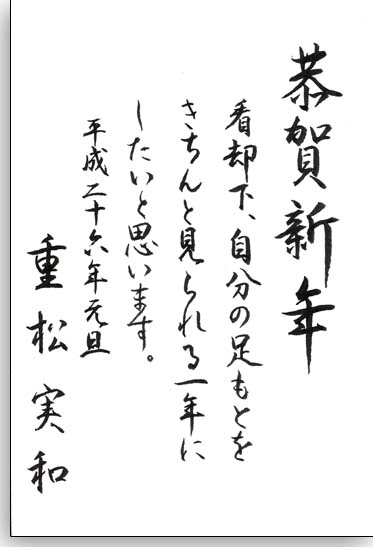 恭賀新年
看却下、自分の足もとを
きちんと見られる一年に
したいと思います。
平成二十六年元旦
重松実和